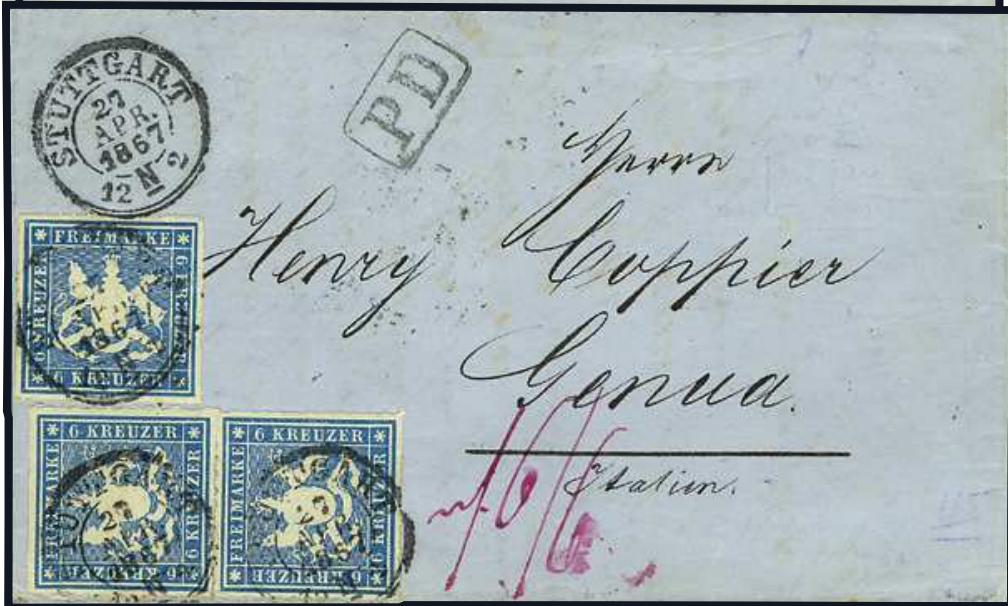 STUTTGART
27
APR.
1867
12 N 2
PD
Herrn
Henry Coppier
Genua.
Italien.
FREIMARKE
6 KREUZER
6 KREUZER
6 KREUZER
FREIMARKE
6 KREUZER
6 KREUZER
6 KREUZER
FREIMARKE
6 KREUZER
6 KREUZER